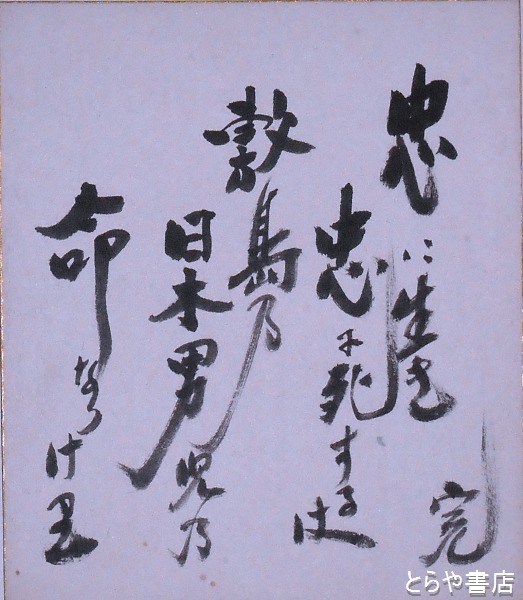 忠に生き
忠尓死するは
敷島乃
日本男児乃
命なりけ里
とらや書店